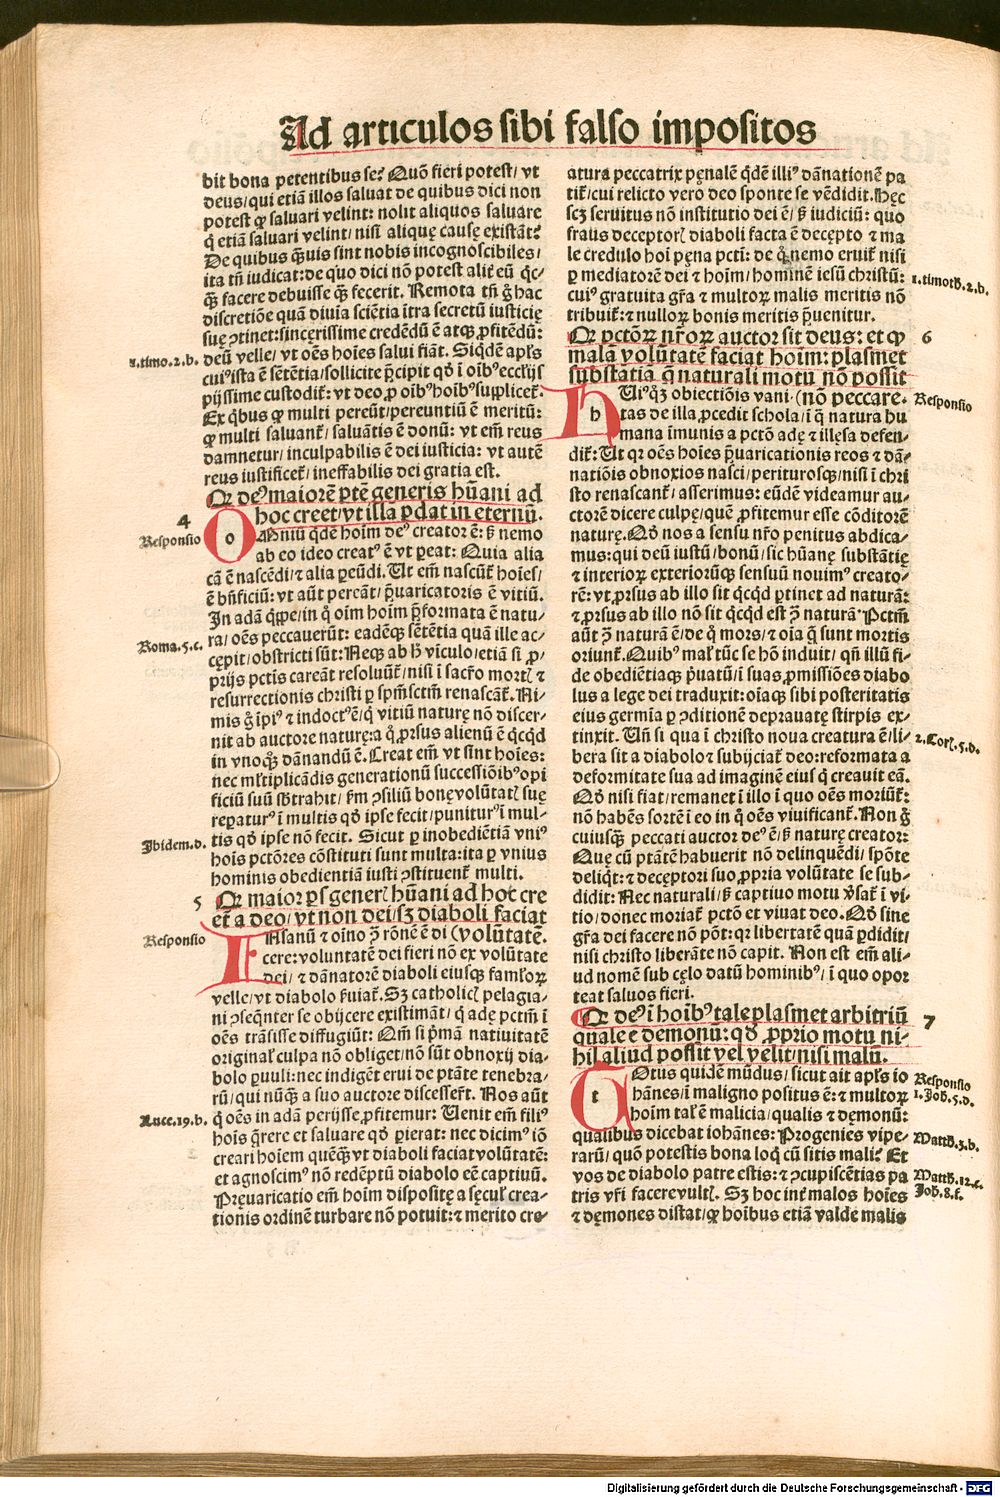 Ad articulos sibi falso impositos
bit bona petentibus se? Quō fieri potest/ vt
deus/ qui etiā illos saluat de quibus dici non
potest ꝙ saluari velint: nolit aliquos saluare
q̇ etiā saluari velint/ nisi alique causę existāt?
De quibus q̄uis sint nobis incognoscibiles/
ita tn̄ iudicat: de quo dici nō potest alit̉ eū q̇c-
q̄ꝫ facere debuisse q̄ꝫ fecerit. Remota tn̄ ḡ hac
discretiōe quā diuīa sciētia ītra secretū iusticię
suę ꝯtinet: sincerissime credēdū ē atqꝫ ꝓfitēdū:
1.timo.2.b. deū velle/ vt oēs hoīes salui fiāt. Siqdē apl̄s
cui⁹ ista ē sētētia/ sollicite p̄cipit qd̉ ī oib⁹ eccl̄ijs
pijssime custodit̉: vt deo ꝓ oib⁹ hoib⁹ supplicet̉.
Ex q̇bus ꝙ multi pereūt/ pereuntiū ē meritū:
ꝙ multi saluant̉/ saluātis ē donū: vt em̄ reus
damnetur/ inculpabilis ē dei iusticia: vt autē
reus iustificet̉/ ineffabilis dei gratia est.
Ꝙ de⁹ maiorē ptē generis hūani ad
4 hoc creet/ vt illā pdat in eternū.
Responsio o Mniū qdē hoim de⁹ creator ē: sꝫ nemo
ab eo ideo creat⁹ ē vt ꝑeat: Quia alia
cā ē nascēdi/ ⁊ alia ꝑeūdi. Ut em̄ nascūt̉ hoīes/
ē bn̄ficiū: vt aūt pereāt/ p̄uaricatoris ē vitiū.
In adā q̇ppe/ in q̇ oim̄ hoim p̄formata ē natu-
Roma.5.c. ra/ oēs peccauerūt: eadēqꝫ sētētia quā ille ac-
cępit/ obstricti sūt: Neqꝫ ab h̄ viculo/ etiā si ꝓ-
prijs pctīs careāt resoluūt̉/ nisi ī sacr̄o mort̉ ⁊
resurrectionis christi ꝑ spm̄sctm̄ renascāt̉. Ni-
mis ḡ īpi⁹ ⁊ indoct⁹ ē/ q̇ vitiū naturę nō discer-
nit ab auctore naturę: a q̇ ꝓrsus alienū ē q̇cqd
in vnoq̇ꝫ dānandū ē. Creat em̄ vt sint hoīes:
nec ml̄tiplicādis generationū successiōib⁹ opi
ficiū suū sb̄trahit/ sm̄ ꝯsiliū bonę volūtat̉ suę
reꝑatur⁹ ī multis qd̉ ipse fecit/ punitur⁹ ī mul-
Ibidem.d. tis qd̉ ipse nō fecit. Sicut ꝑ inobediētiā vni⁹
hoīs pctōres cōstituti sunt multa: ita ꝑ vnius
hominis obedientiā iusti ꝯstituent̉ multi.
5 Ꝙ maior ps gener̉ hūani ad hoc cre
et̉ a deo/ vt non dei/ sꝫ diaboli faciat
Responsio I Nsanū ⁊ oīno ꝯ̄ rōnē ē di (volūtatē.
cere: voluntatē dei fieri nō ex volūtate
dei/ ⁊ dānatorē diaboli eiusqꝫ faml̄oꝝ
velle/ vt diabolo ẜuiat̉. Sꝫ catholic̉ pelagia-
ni ꝯseq̄nter se obijcere existimāt/ q̇ adę pctm̄ ī
oēs trāsisse diffugiūt: Qm̄ si p̄mā natiuitatē
original̉ culpa nō obliget/ nō sūt obnoxij dia-
bolo ꝑuuli: nec indigēt erui de ptāte tenebra-
rū/ qui nūq̄ꝫ a suo auctore discesser̄t. Nos aūt
Luce.19.b. q̇ oēs in adā perijsse ꝓfitemur: Uenit em̄ fili⁹
hoīs q̄rere et saluare qd̉ ꝑierat: nec dicim⁹ iō
creari hoiem quēq̄ꝫ vt diaboli faciat volūtatē:
et agnoscim⁹ nō redēptū diabolo eē captiuū.
Pręuaricatio em̄ hoim dispositę a sęcul̉ crea-
tionis ordinē turbare nō potuit: ⁊ merito cre-
atura peccatrix pęnalē q̇dē illi⁹ dānationē pa
tit̉/ cui relicto vero deo sponte se vēdidit. Hęc
scꝫ seruitus nō institutio dei ē/ sꝫ iudiciū: quo
fraus deceptor̉ diaboli facta ē decępto ⁊ ma
le credulo hoi pęna pctī: de q̄ nemo eruit̉ nisi
ꝑ mediatorē dei ⁊ hoim/ hominē iesū christū: 1.timoth.2.b.
cui⁹ gratuita gr̄a ⁊ multoꝝ malis meritis nō
tribuit̉: ⁊ nulloꝝ bonis meritis p̄uenitur.
Ꝙ pctōꝝ nr̄oꝝ auctor sit deus: et ꝙ 6
malā volūtatē faciat hoim: plasmet
substātiā q̄ naturali motu nō possit
h Ui⁹q̇ꝫ obiectiōis vani- (nō peccare. Responsio
tas de illa ꝓcedit schola/ ī q̄ natura hu
mana īmunis a pctō adę ⁊ illęsa defen-
dit̉: Ut qr oēs hoīes p̄uaricationis reos ⁊ dā-
natiōis obnoxios nasci/ perituros qꝫ/ nisi ī chri
sto renascant̉/ asserimus: eūdē videamur au-
ctorē dicere culpę/ quē ꝓfitemur esse cōditorē
naturę. Qd̉ nos a sensu nr̄o penitus abdica-
mus: qui deū iustū/ bonū/ sic hūanę substātię
⁊ interioꝝ exteriorūqꝫ sensuū nouim⁹ creato-
rē: vt ꝓrsus ab illo sit q̇cqd ꝑtinet ad naturā:
⁊ ꝓrsus ab illo nō sit q̇cqd est ꝯ̄ naturā Pctm̄
aūt ꝯ̄ naturā ē/ de q̇ mors/ ⁊ oīa q̄ sunt mortis
oriunt̉. Quib⁹ mal̉ tūc se hō induit/ qn̄ illū fi-
de obediētiaqꝫ p̄uatū/ ī suas ꝓmissiōes diabo
lus a lege dei traduxit: oīaqꝫ sibi posteritatis
eius germīa ꝑ ꝯditionē deprauatę stirpis ex-
tinxit. Un̄ si qua ī christo noua creatura ē/ li- 2.Cor̉.5.d.
bera sit a diabolo ⁊ subijciat̉ deo: reformata a
deformitate sua ad imaginē eius q̇ creauit eā.
Qd̉ nisi fiat/ remanet ī illo ī quo oēs moriūt̉:
nō habēs sortē ī eo in q̇ oēs viuificant̉. Non ḡ
cuiusq̄ꝫ peccati auctor de⁹ ē/ sꝫ naturę creator:
Quę cū ptātē habuerit nō delinquēdi/ spōte
deliqt̉: ⁊ decęptori suo ꝓpria volūtate se sub-
didit: Nec naturali/ sꝫ captiuo motu v̉sat̉ ī vi-
tio/ donec moriat̉ pctō et viuat deo. Qd̉ sine
gr̄a dei facere nō pōt: qr libertatē quā ꝑdidit/
nisi christo liberāte nō capit. Non est em̄ ali-
ud nomē sub cęlo datū hominib⁹/ ī quo opor
teat saluos fieri.
Ꝙ de⁹ ī hoīb⁹ tale plasmet arbitriū
quale e demonū: qd̉ ꝓprio motu ni- 7
hil aliud possit vel velit/ nisi malū.
t Otus quidē mūdus/ sicut ait apl̄s io Responsio
hānes/ ī maligno positus ē: ⁊ multoꝝ 1.Joh.5.d.
hoim tal̉ ē malicia/ qualis ⁊ dęmonū:
qualibus dicebat iohānes: Progenies vipe- Matth.3.b.
rarū/ quō potestis bona loq̇ cū sitis mali? Et
vos de diabolo patre estis: ⁊ ꝯcupiscētias pa Matth.12.c.
tris vr̄i facere vult̉. Sꝫ hoc int̉ malos hoīes Joh.8.f.
⁊ dęmones distat/ qꝫ hoībus etiā valde malis
Digitalisierung gefördert durch die Deutsche Forschungsgemeinschaft - DFG